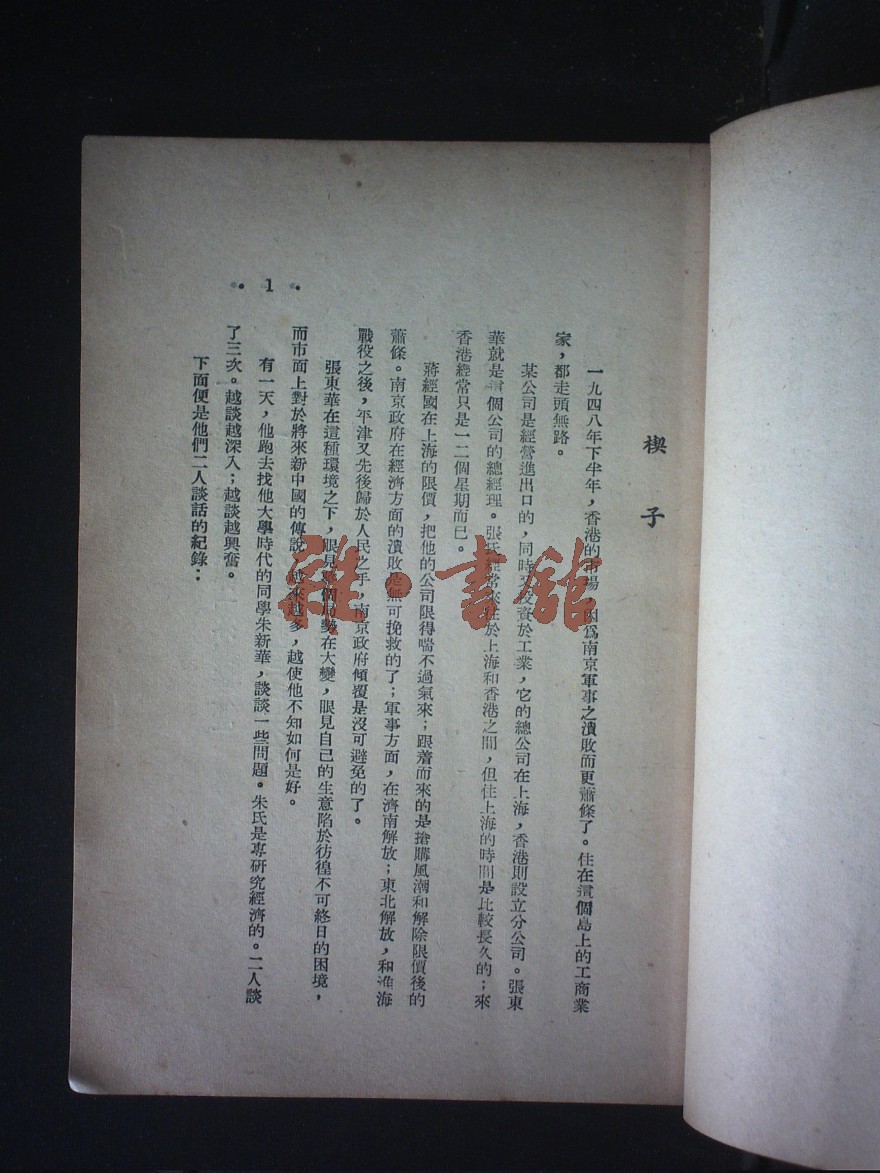 楔子
一九四八年下半年，香港的市場，因爲南京軍事之潰敗而更蕭條了。住在這個島上的工商業
家，都走頭無路。
某公司是經營進出口的，同時又投資於工業，它的總公司在上海，香港則設立分公司。張東
華就是這個公司的總經理。張氏經常來往於上海和香港之間，但住上海的時間是比較長久的；來
香港經常只是一二個星期而已。
蔣經國在上海的限價，把他的公司限得喘不過氣來；跟着而來的是搶購風潮和解除限價後的
蕭條。南京政府在經濟方面的潰敗是無可挽救的了；軍事方面，在濟南解放；東北解放，和淮海
戰役之後，平津又先後歸於人民之手，南京政府傾覆是沒可避免的了。
張東華在這種環境之下，眼見整個局勢在大變，眼見自己的生意陷於彷徨不可終日的困境，
而市面上對於將來新中國的傳說，越來越多，越使他不知如何是好。
有一天，他跑去找他大學時代的同學朱新華，談談一些問題。朱氏是專研究經濟的。二人談
了三次。越談越深入；越談越興奮。
下面便是他們二人談話的紀錄：
1
雜·書館